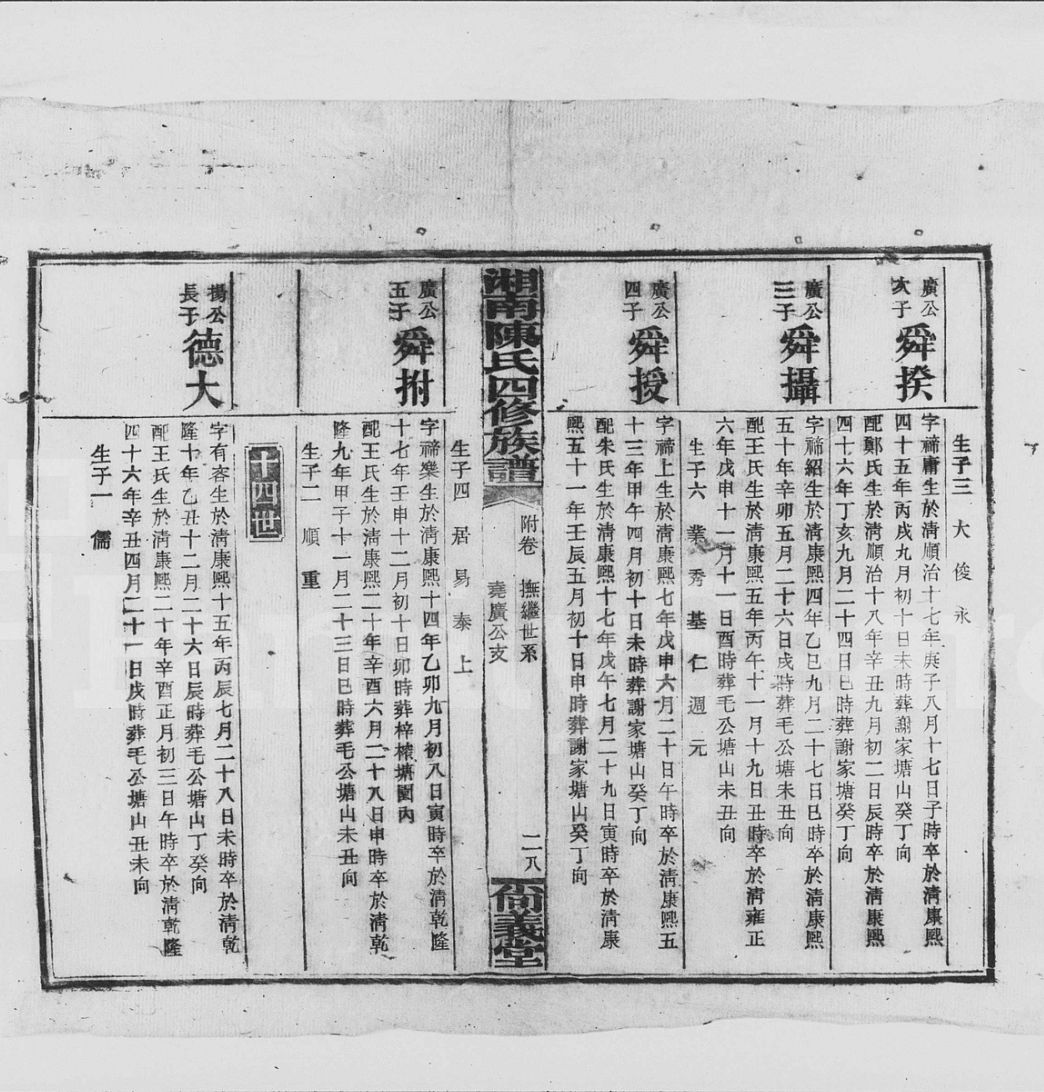 生子三 大 俊 永
廣公
次子
舜揆
字禘庸生於淸順治十七年庚子八月十七日子時卒於淸康熙
四十五年丙戌九月初十日未時葬謝家塘山癸丁向
配鄭氏生於淸順治十八年辛丑九月初二日辰時卒於淸康熙
四十六年丁亥九月二十四日巳時葬謝家塘癸丁向
廣公
三子
舜攝
字禘紹生於淸康熙四年乙巳九月二十七日巳時卒於淸康熙
五十年辛卯五月二十六日戌時葬毛公塘未丑向
配王氏生於淸康熙五年丙午十一月十九日丑時卒於淸雍正
六年戊申十一月十一日酉時葬毛公塘山未丑向
生子六 業 秀 基 仁 週 元
廣公
四子
舜授
字禘上生於淸康熙七年戊申六月二十日午時卒於淸康熙五
十三年甲午四月初十日未時葬謝家塘山癸丁向
配朱氏生於淸康熙十七年戊午七月二十九日寅時卒於淸康
熙五十一年壬辰五月初十日申時葬謝家塘山癸丁向
湘南陳氏四修族譜
附卷 撫繼世系
堯廣公支
二八
尙義堂
生子四 居 易 泰 上
廣公
五子
舜拊
字禘樂生於淸康熙十四年乙卯九月初八日寅時卒於淸乾隆
十七年壬申十二月初十日卯時葬梓樣塘園內
配王氏生於淸康熙二十年辛酉六月二十八日申時卒於淸乾
隆九年甲子十一月二十三日巳時葬毛公塘山未丑向
生子二 順 重
十四世
揚公
長子
德大
字有容生於淸康熙十五年丙辰七月二十八日未時卒於淸乾
隆十年乙丑十二月二十六日辰時葬毛公塘山丁癸向
配王氏生於淸康熙二十年辛酉正月初三日午時卒於淸乾隆
四十六年辛丑四月二十一日戌時葬毛公塘山丑未向
生子一 儒